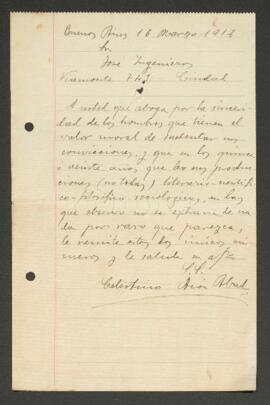 Buenos Aires 16 Marzo 1913
Sr.
José Ingenieros
Viamonte 743 Ciudad
A usted que aboga por la sinceri
dad de los hombres que tienen el
valor moral de sustentar sus
convicciones, y que en los quince
o veinte años que leo sus produc
ciones (no todas) literario-científi
co-filosófico-sociológicas, en las
que observo no se extraña de na
da por raro que parezca,
le remite estos dos únicos nú
meros y le saluda
S. S.
Celestino